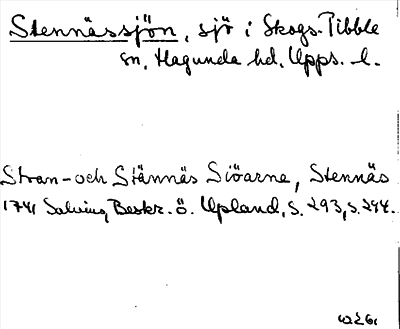 Stennässjön, sjö i Skogs-Tibble
sn, Hagunda hd. Upps. l.
Stran- och Stännäs Siöarne, Stennäs
1741 Salving Beskr. ö. Upland, s. 293, s. 294.